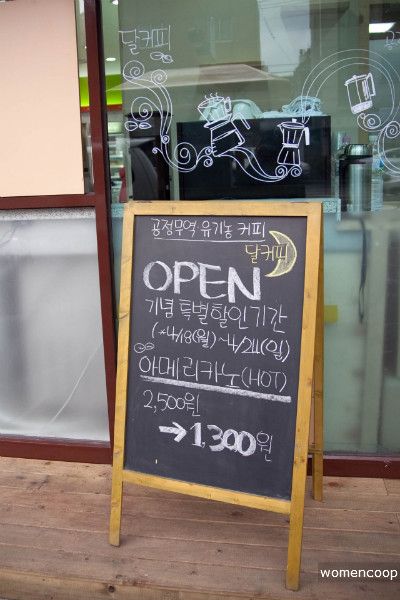 달커피
공정무역·유기농 커피
달커피
OPEN
기념 특별할인기간
(*4/18(월)~4/24(일)
아메리카노(HOT)
2,500원
→1,300원
womencoop